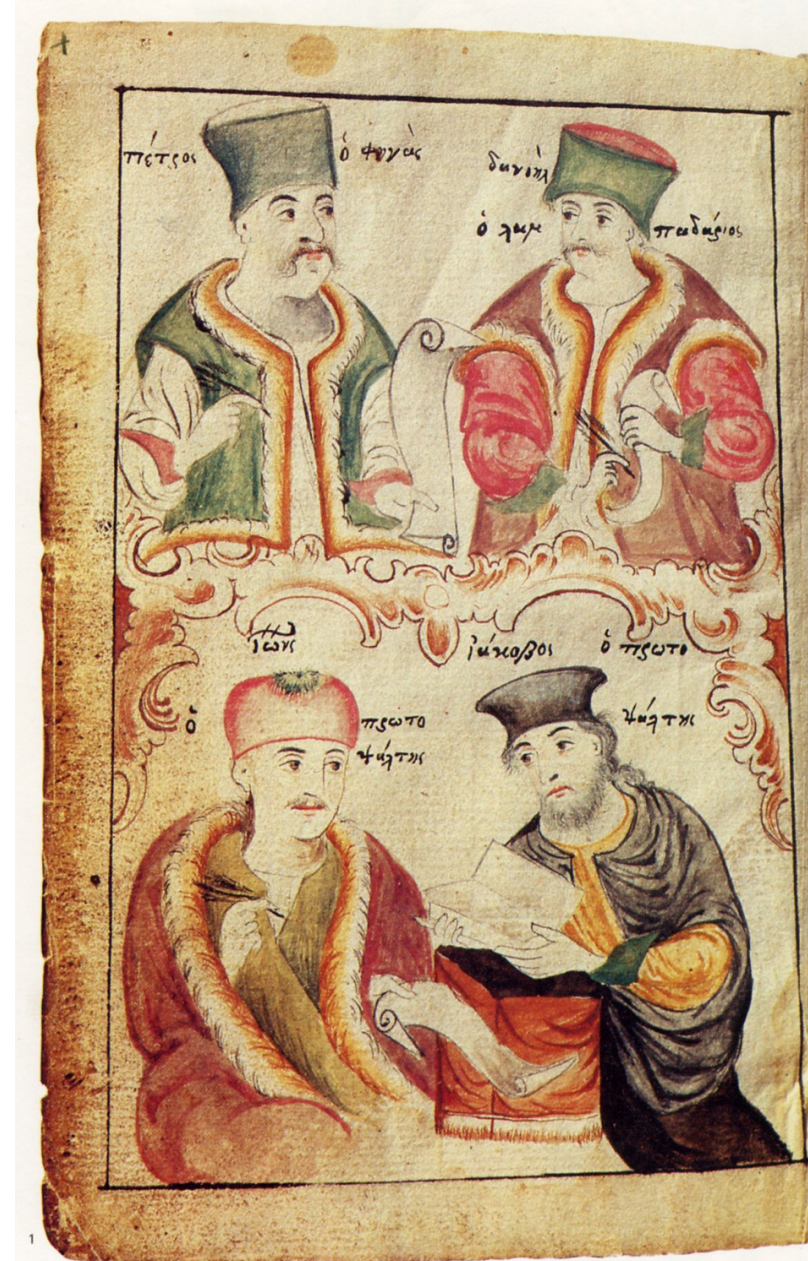 πέτρος ὁ φυγὰς
δανιὴλ
ὁ λαμ παδάριος
ἰώνς
ὁ πρωτο
ψάλτης
ἰάκοβος ὁ πρωτο
ψάλτης
1